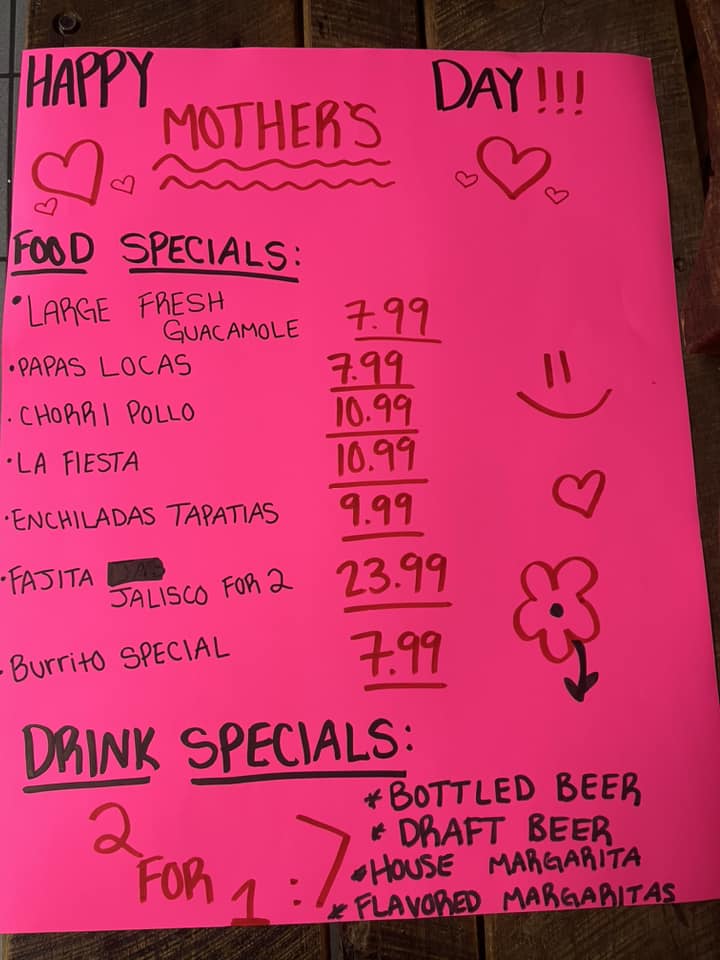 HAPPY MOTHER'S DAY!!!
FOOD SPECIALS:
•LARGE FRESH
GUACAMOLE 7.99
•PAPAS LOCAS 7.99
•CHORRI POLLO 10.99
•LA FIESTA 10.99
•ENCHILADAS TAPATIAS 9.99
•FAJITA
JALISCO FOR 2 23.99
•Burrito SPECIAL 7.99
DRINK SPECIALS:
2 FOR 1 :
*BOTTLED BEER
*DRAFT BEER
*HOUSE MARGARITA
*FLAVORED MARGARITAS